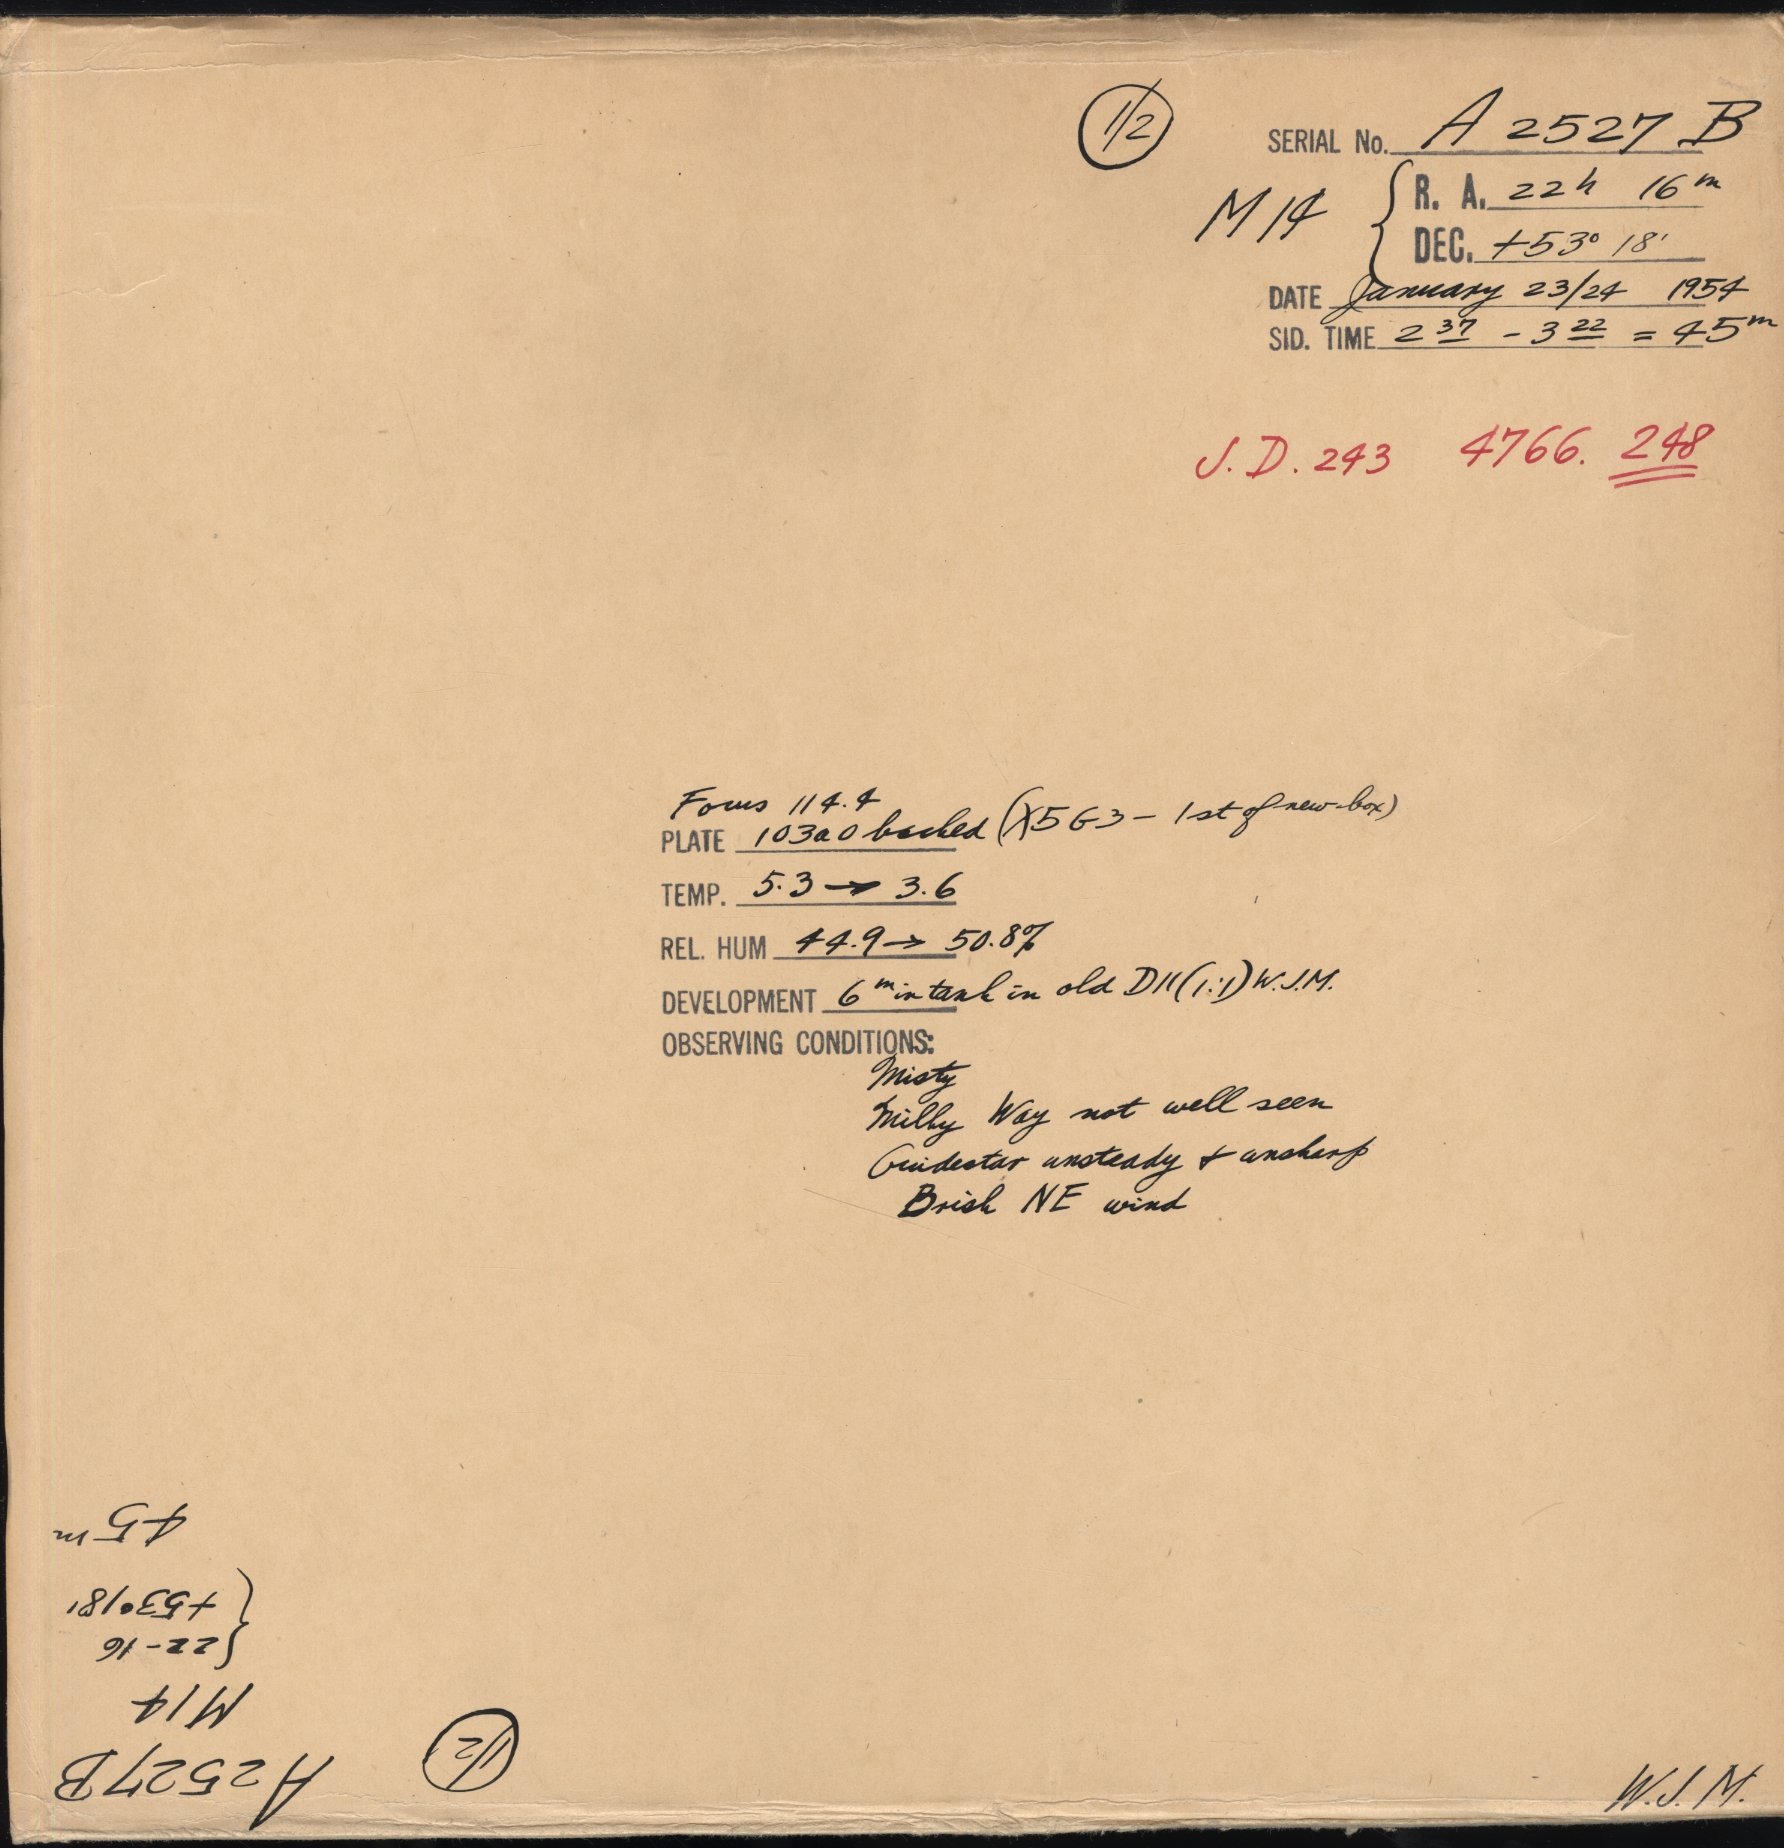 1/2
SERIAL No. A 2527 B
M 14 { R. A. 22h 16m
DEC. +53° 18'
DATE January 23/24 1954
SID. TIME 2 37 - 3 22 = 45m
J. D. 243 4766. 248
Focus 114.4
PLATE 103a0 backed (X5G3 - 1st of new box)
TEMP. 5.3 → 3.6
REL. HUM 44.9 → 50.8%
DEVELOPMENT 6m in tank in old D11 (1:1) W.J.M.
OBSERVING CONDITIONS:
Misty
Milky Way not well seen
Guidestar unsteady & unsharp
Brisk NE wind
W.J.M.
1/2
A2527B
M14
{ 22-16
+53°18'
45m